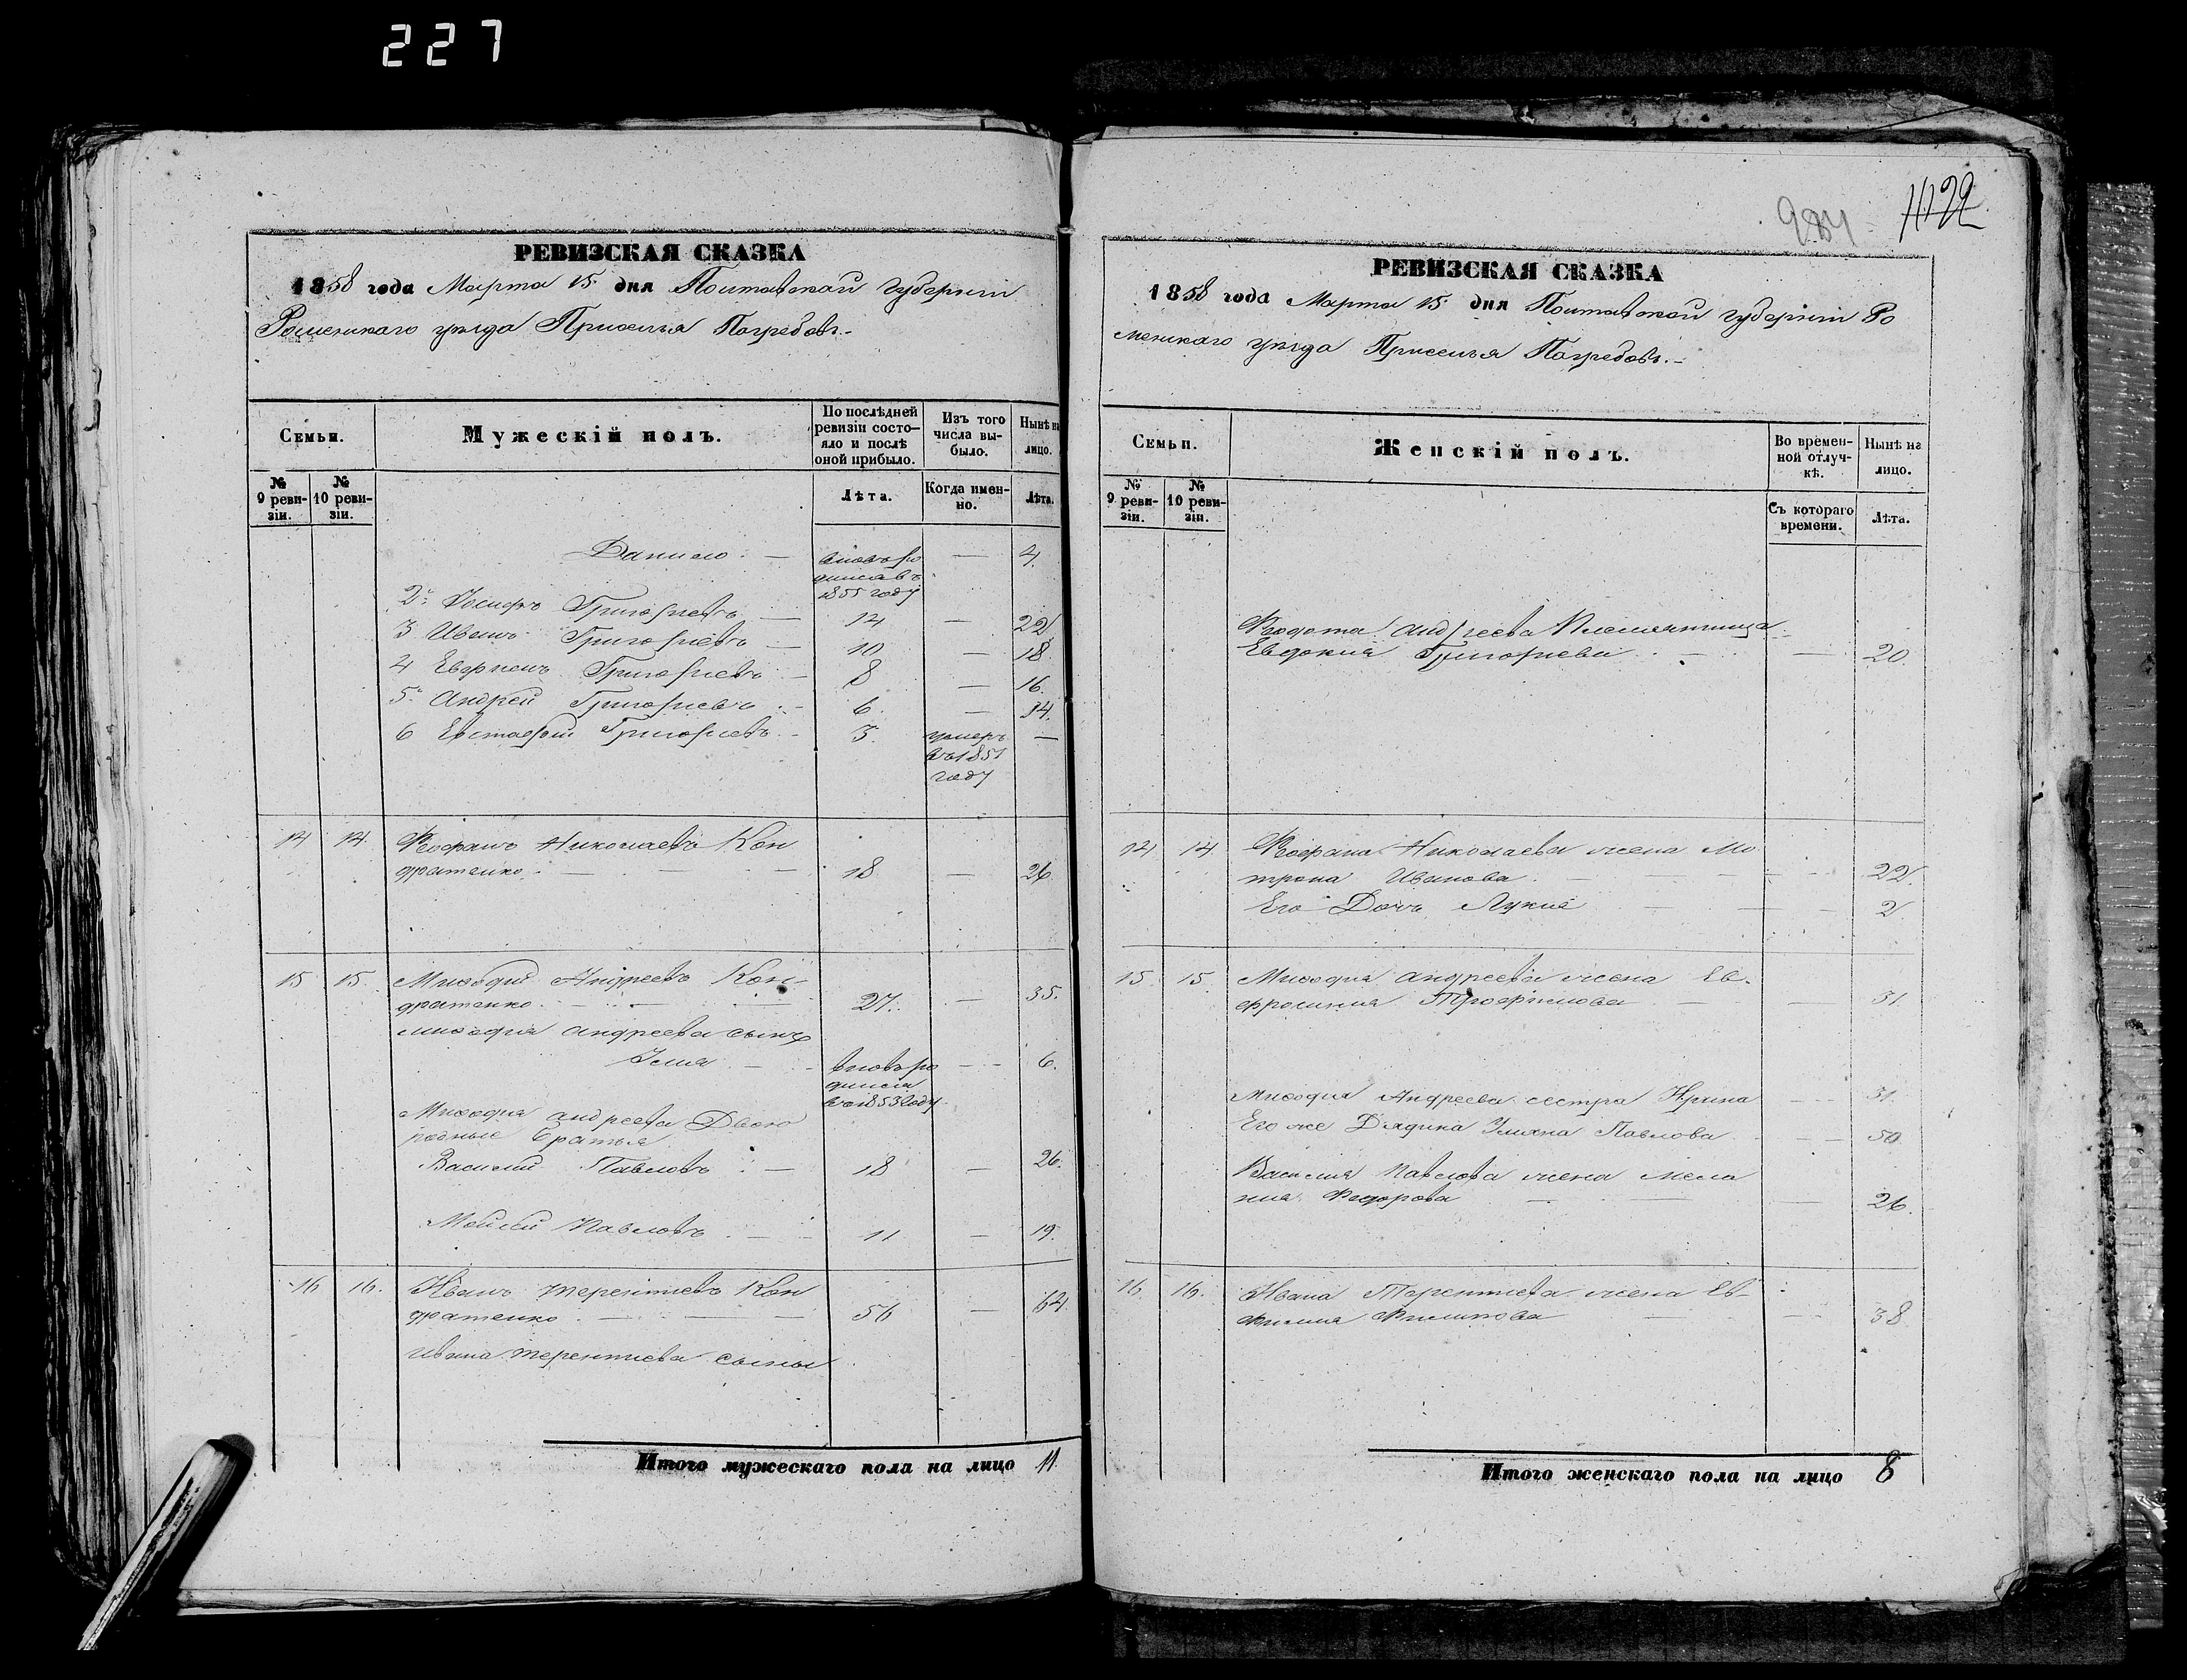 227
РЕВИЗСКАЯ СКАЗКА
1858 года Марта 15 дня Полтавской губернiи
Роменскаго уѣзда Приселья Погребовъ.
Семьи.
Мужескiй полъ.
По послѣдней ревизiи состояло и послѣ оной прибыло.
Изъ того числа выбыло.
Нынѣ на лицо.
№ 9 ревизiи.
№ 10 ревизiи.
Лѣта.
Когда именно.
Лѣта.
Данило — вновь ро — 4.
дился въ
1855 году
2й Iосифъ Григорьевъ — 14 — 22
3 Иванъ Григорьевъ — 10 — 18
4 Евфимъ Григорьевъ — 8 — 16.
5й Андрей Григорьевъ — 6. — 14.
6 Евстафiй Григорьевъ — 3. умеръ —
въ 1851
году
14 14. Феофанъ Николаевъ Кон
дратенко — 18 — 26
15 15. Мифодiй Андреевъ Кон-
дратенко — 27. — 35.
Мифодiя Андреева сынъ
Илiя — вновь ро — 6.
дился
въ 1853 году
Мифодiя Андреева Двою
родные братья
Василiй Павловъ — 18 — 26.
Павловъ — 11 — 19.
16 16. Иванъ Терентiевъ Кон
дратенко — 56 — 64.
Ивана Терентiева сыны
Итого мужескаго пола на лицо 11
984 1122
РЕВИЗСКАЯ СКАЗКА
1858 года Марта 15 дня Полтавской губернiи Ро
менскаго уѣзда Приселья Погребовъ.
Семьи.
Женскiй полъ.
Во временной отлучкѣ.
Нынѣ на лицо.
№ 9 ревизiи.
№ 10 ревизiи.
Съ котораго времени.
Лѣта.
Андреева Племянница
Евдокия Григорьева — — 20.
14 14 Феофана Николаева жена Мо
трона Иванова — — 22.
Его Дочь Лукiя — — 2
15. 15. Мифодiя Андреева жена Ев-
фросинiя Трофимова — — 31.
Мифодiя Андреева сестра Ирина — 31.
Его же Дядина Улияна Павлова — 50
Василiя Павлова жена Мела
нiя Федорова — — 26.
16. 16. Ивана Терентiева жена Ев-
фимiя Филипова — — 38
Итого женскаго пола на лицо 8